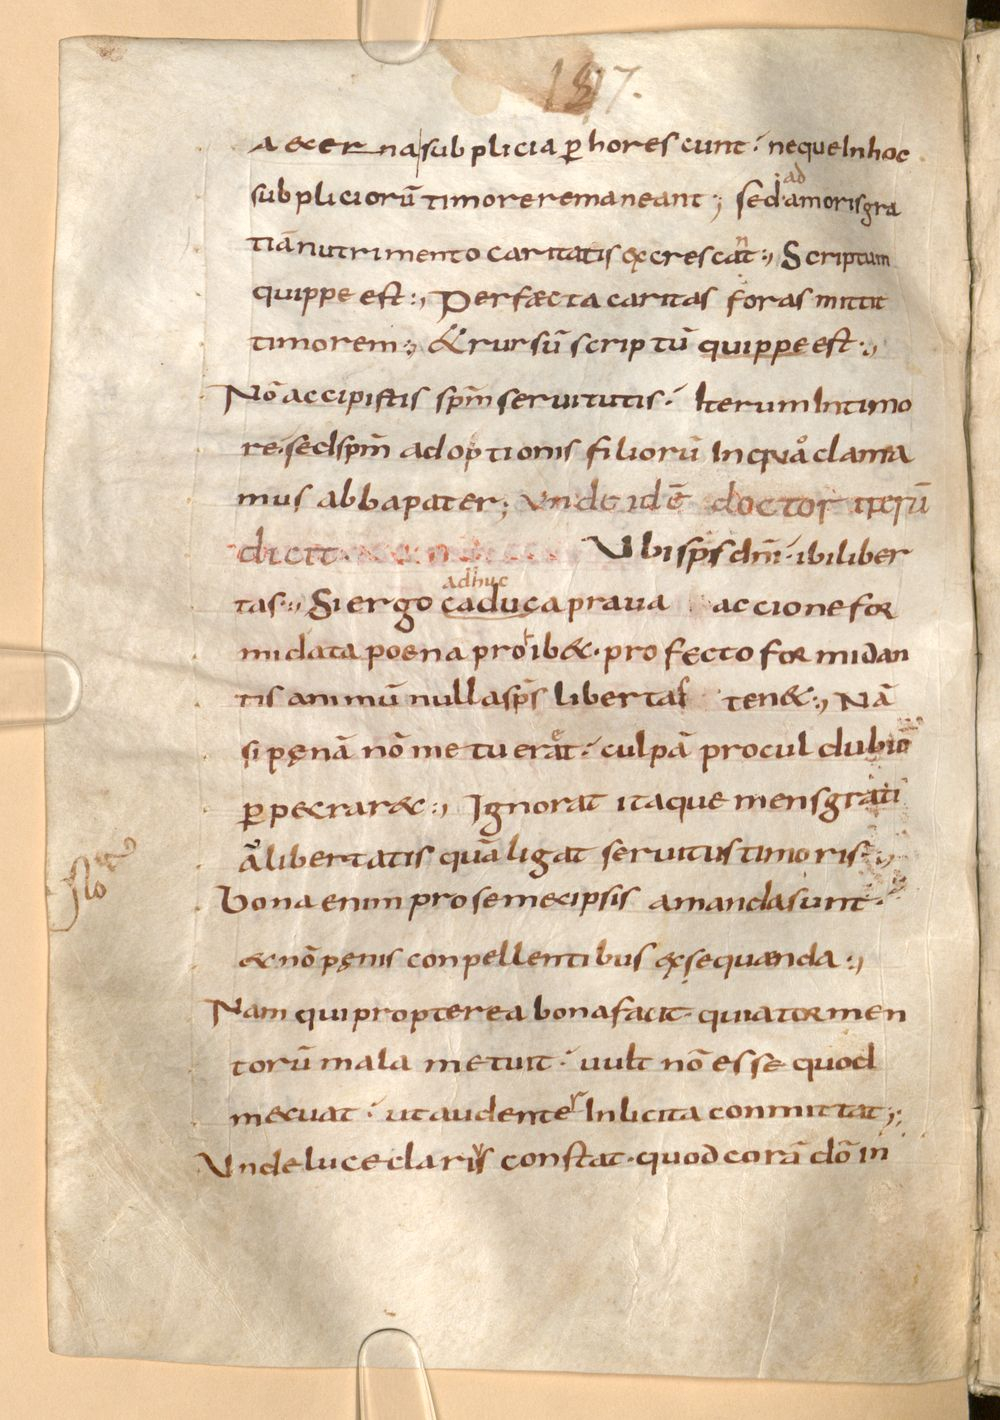 187.
A&er na subplicia ꝑhorescunt· neque In hoc
subpliciorū timore remaneant; sed ad amoris gra
tiā nutrimento caritatis excrescant:, Scriptum
quippe est:, Perfæcta caritas foras mittit
timorem:, & rursū scriptū quippe est:,
Nō accipistis sp̄m seruitutis· Iterum In timo
re· sed sp̄m adoptionis filiorū In quo clama
mus abba pater; Vnde idē doctor iterū
dicit Vbi sp̄s dn̄i· ibi liber
tas:, Si ergo adhuc caduca praua accione for
midata poena prohib&· profecto formidan
tis animū nulla sp̄s libertas ten&:, Nā
si pęnā nō metueret· culpā procul dubiū
ꝑp&rar&:, Ignorat itaque mens grati
ā libertatis quā ligat seruitus timoris:,
Bona enim pro sem&ipsis amanda sunt·
& nō pęnis conpellentibus exsequanda:,
Nota
Nam qui propterea bona facit· quia tormen
torū mala metuit· uult nō esse quod
m&uat· ut audenter Inlicita conmittat;
Vnde luce clarius constat· quod corā dō in